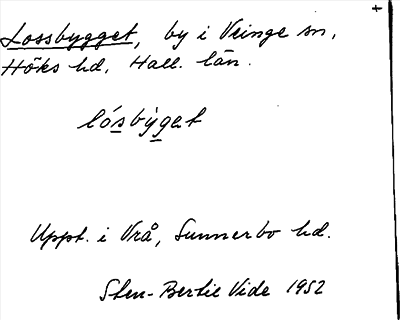 +
Lossbygget, by i Veinge sn,
Höks hd, Hall. län.
lósbýget
Uppt. i Vrå, Sunnerbo hd.
Sten-Bertil Vide 1952